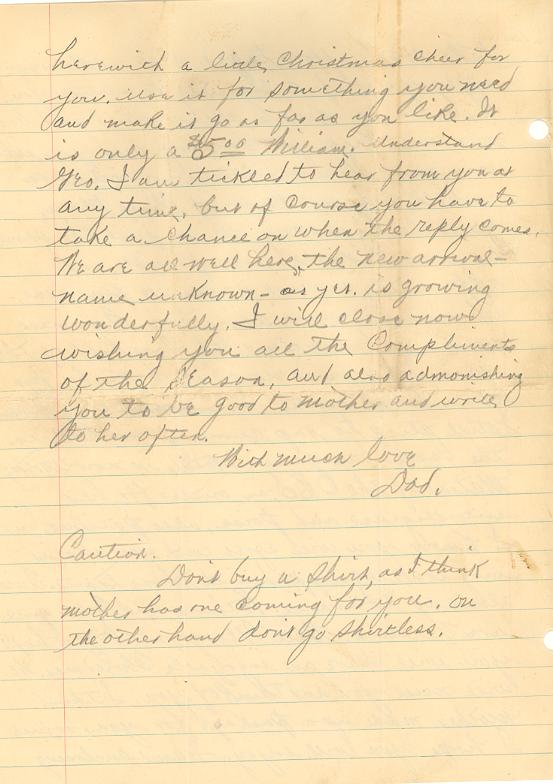 herewith a little Christmas cheer for
you. Use it for something you need
and make it go as far as you like. It
is only a $5.00 William. Understand
Geo. I am tickled to hear from you at
any time, but of course you have to
take a chance on when the reply comes.
We are all well here, the new arrival -
name unknown - as yet. is growing
wonderfully. I will close now
wishing you all the Compliments
of the Season, and also admonishing
you to be good to mother and write
to her often.
With much love
Dad.
Caution.
Don't buy a shirt, as I think
mother has one coming for you. On
the other hand don't go shirtless.